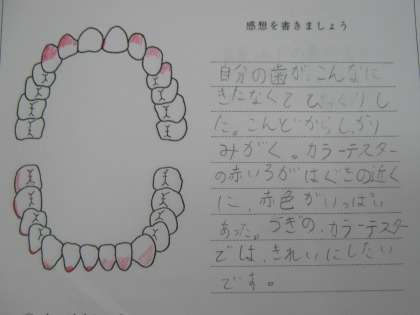 感想を書きましょう
自分の歯が、こんなに
きたなくて びっくりし
た。こんどからしっかり
みがく。カラーテスター
の赤いろがはぐきの近く
に、赤色がいっぱい
あった。つぎの、カラーテスター
では、きれいにしたい
です。